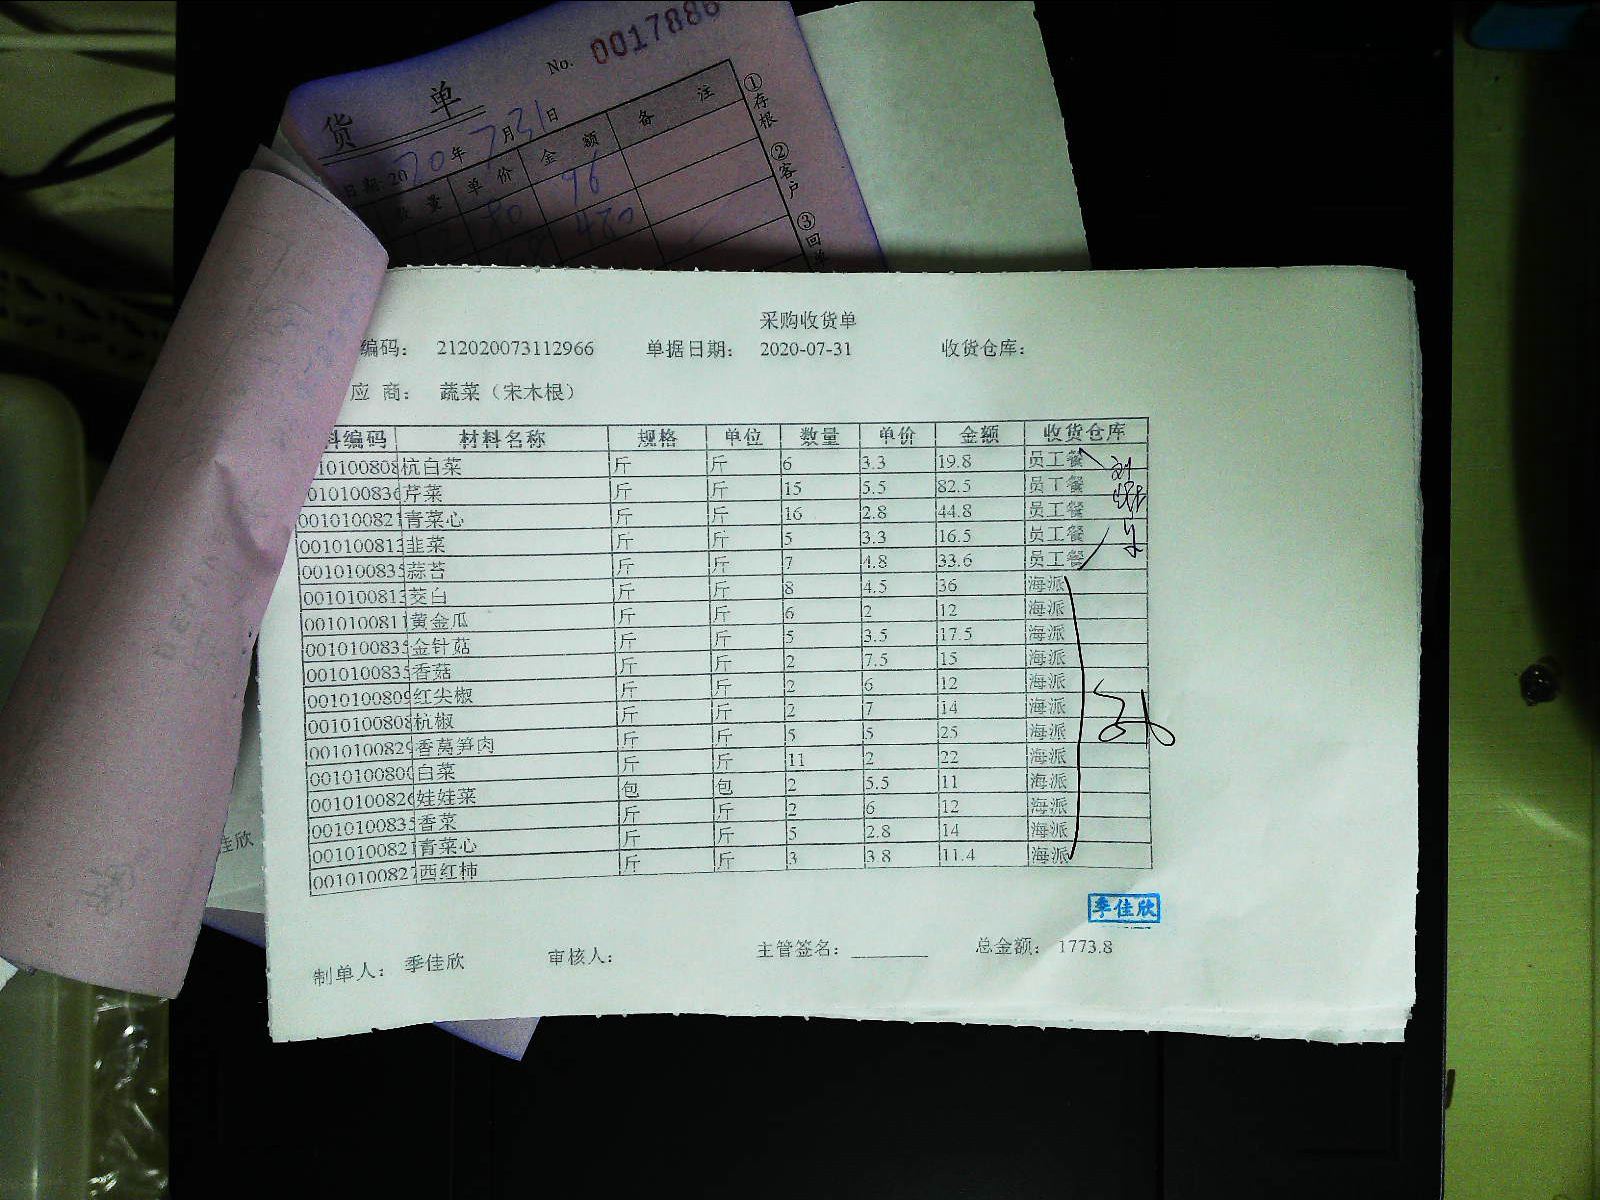 No. 0017886
货 单
日期:2020年7月31日
数量 单价 金额 备注
80 96
480
①存根
②客户
③回单
采购收货单
编码： 212020073112966 单据日期： 2020-07-31 收货仓库：
应 商： 蔬菜（宋木根）
料编码 材料名称 规格 单位 数量 单价 金额 收货仓库
10100808 杭白菜 斤 斤 6 3.3 19.8 员工餐
010100836 芹菜 斤 斤 15 5.5 82.5 员工餐
0010100821 青菜心 斤 斤 16 2.8 44.8 员工餐
0010100813 韭菜 斤 斤 5 3.3 16.5 员工餐
0010100835 蒜苔 斤 斤 7 4.8 33.6 员工餐
0010100813 茭白 斤 斤 8 4.5 36 海派
0010100811 黄金瓜 斤 斤 6 2 12 海派
0010100835 金针菇 斤 斤 5 3.5 17.5 海派
0010100835 香菇 斤 斤 2 7.5 15 海派
0010100809 红尖椒 斤 斤 2 6 12 海派
0010100808 杭椒 斤 斤 2 7 14 海派
0010100829 香莴笋肉 斤 斤 5 5 25 海派
0010100800 白菜 斤 斤 11 2 22 海派
0010100826 娃娃菜 包 包 2 5.5 11 海派
0010100835 香菜 斤 斤 2 6 12 海派
0010100821 青菜心 斤 斤 5 2.8 14 海派
0010100827 西红柿 斤 斤 3 3.8 11.4 海派
季佳欣
制单人： 季佳欣 审核人： 主管签名：________ 总金额： 1773.8
佳欣